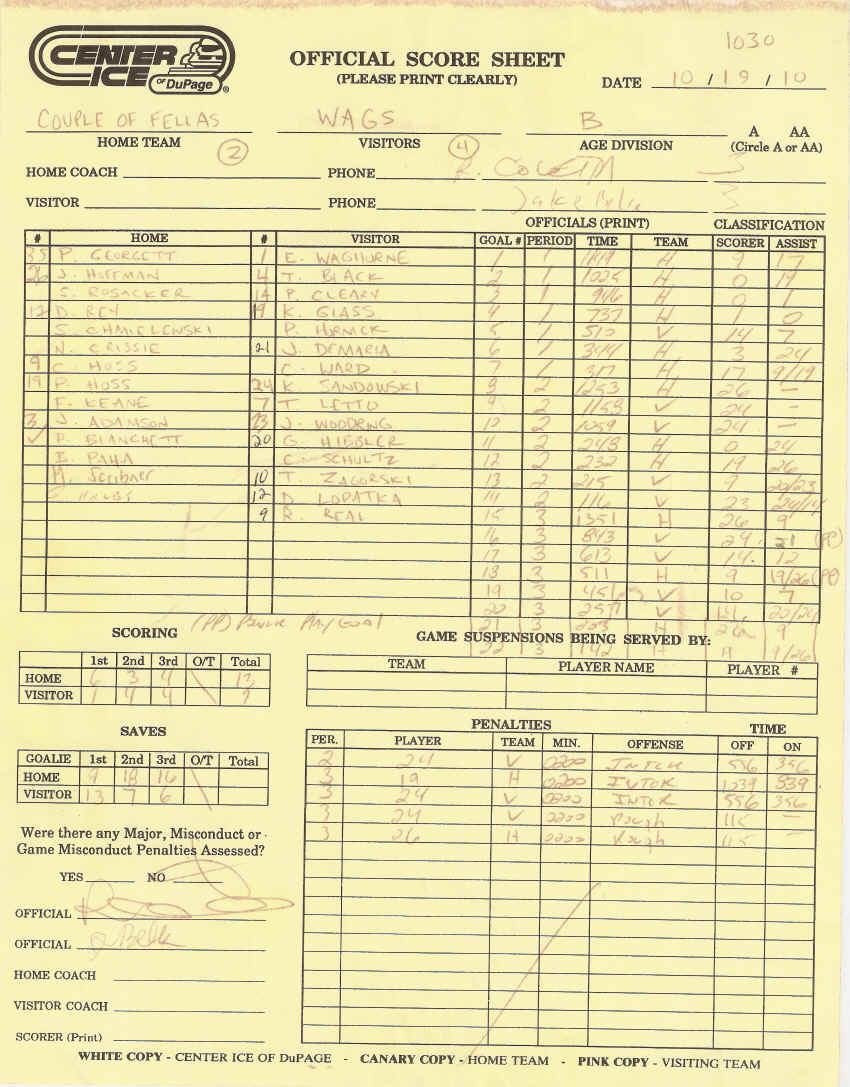 1030
CENTER ICE OF DuPage ®
OFFICIAL SCORE SHEET
(PLEASE PRINT CLEARLY)
DATE 10 / 19 / 10
COUPLE OF FELLAS WAGS B A AA
HOME TEAM VISITORS AGE DIVISION (Circle A or AA)
2 4
HOME COACH PHONE R. COLETTA 3
VISITOR PHONE Jake 3
OFFICIALS (PRINT) CLASSIFICATION
# HOME # VISITOR GOAL # PERIOD TIME TEAM SCORER ASSIST
35 P. GEORGETT 1 E. WAGHORNE 1 1 H 9 17
26 J. HOFFMAN 4 T. BLACK 2 1 1025 H 0 19
S. ROSACKER 14 P. CLEARY 3 1 946 H 0 1
12 D. REY 19 K. GLASS 4 1 737 H 1 0
S. CHMIELEWSKI P. HORNICK 5 1 510 V 14 7
N. CRISSIE 21 J. DEMARIA 6 1 344 H 3 24
9 C. HOSS C. WARD 7 1 317 H 17 9/19
19 P. HOSS 24 K. SANDOWSKI 8 2 1253 H 26 -
F. KEANE 7 T. LETTO 9 2 1158 V 24 -
3 J. ADAMSON 23 J. WOODRING 10 2 1059 V 24 -
✓ P. BLANCHETT 20 G. HIEBLER 11 2 248 H 0 24
E. PAHA C. SCHULTZ 12 2 232 H 19 26
M. Scribner 10 T. ZAGORSKI 13 2 215 V 9 20/23
12 D. LOPATKA 14 2 116 V 23 24/14
9 R. REAL 15 3 1351 H 26 9
16 3 843 V 24 21 (PP)
17 3 613 V 14 12
18 3 511 H 9 19/26 (PP)
19 3 451 V 10 7
20 3 257 V 14 20/24
(PP) Power Play Goal 21 3 223 H 26 9
22 3 142 H 19 9/26
SCORING GAME SUSPENSIONS BEING SERVED BY:
1st 2nd 3rd O/T Total TEAM PLAYER NAME PLAYER #
HOME 6 3 4 \ 13
VISITOR 1 4 4 \ 9
SAVES PENALTIES TIME
PER. PLAYER TEAM MIN. OFFENSE OFF ON
GOALIE 1st 2nd 3rd O/T Total 2 24 V 0200 INTER 556 356
HOME 9 18 16 \ 3 19 H 0200 INTER 1039 839
VISITOR 13 7 6 \ 3 24 V 0200 INTER 556 356
3 24 V 0200 Rough 115 -
Were there any Major, Misconduct or 3 26 H 0200 Rough 115 -
Game Misconduct Penalties Assessed?
YES NO
OFFICIAL
OFFICIAL
HOME COACH
VISITOR COACH
SCORER (Print)
WHITE COPY - CENTER ICE OF DuPAGE - CANARY COPY - HOME TEAM - PINK COPY - VISITING TEAM